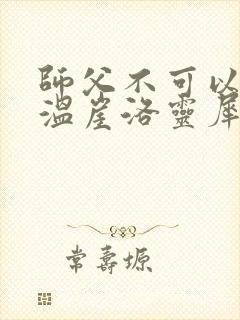 師父不可以
溫崖洛靈犀
常壽塬